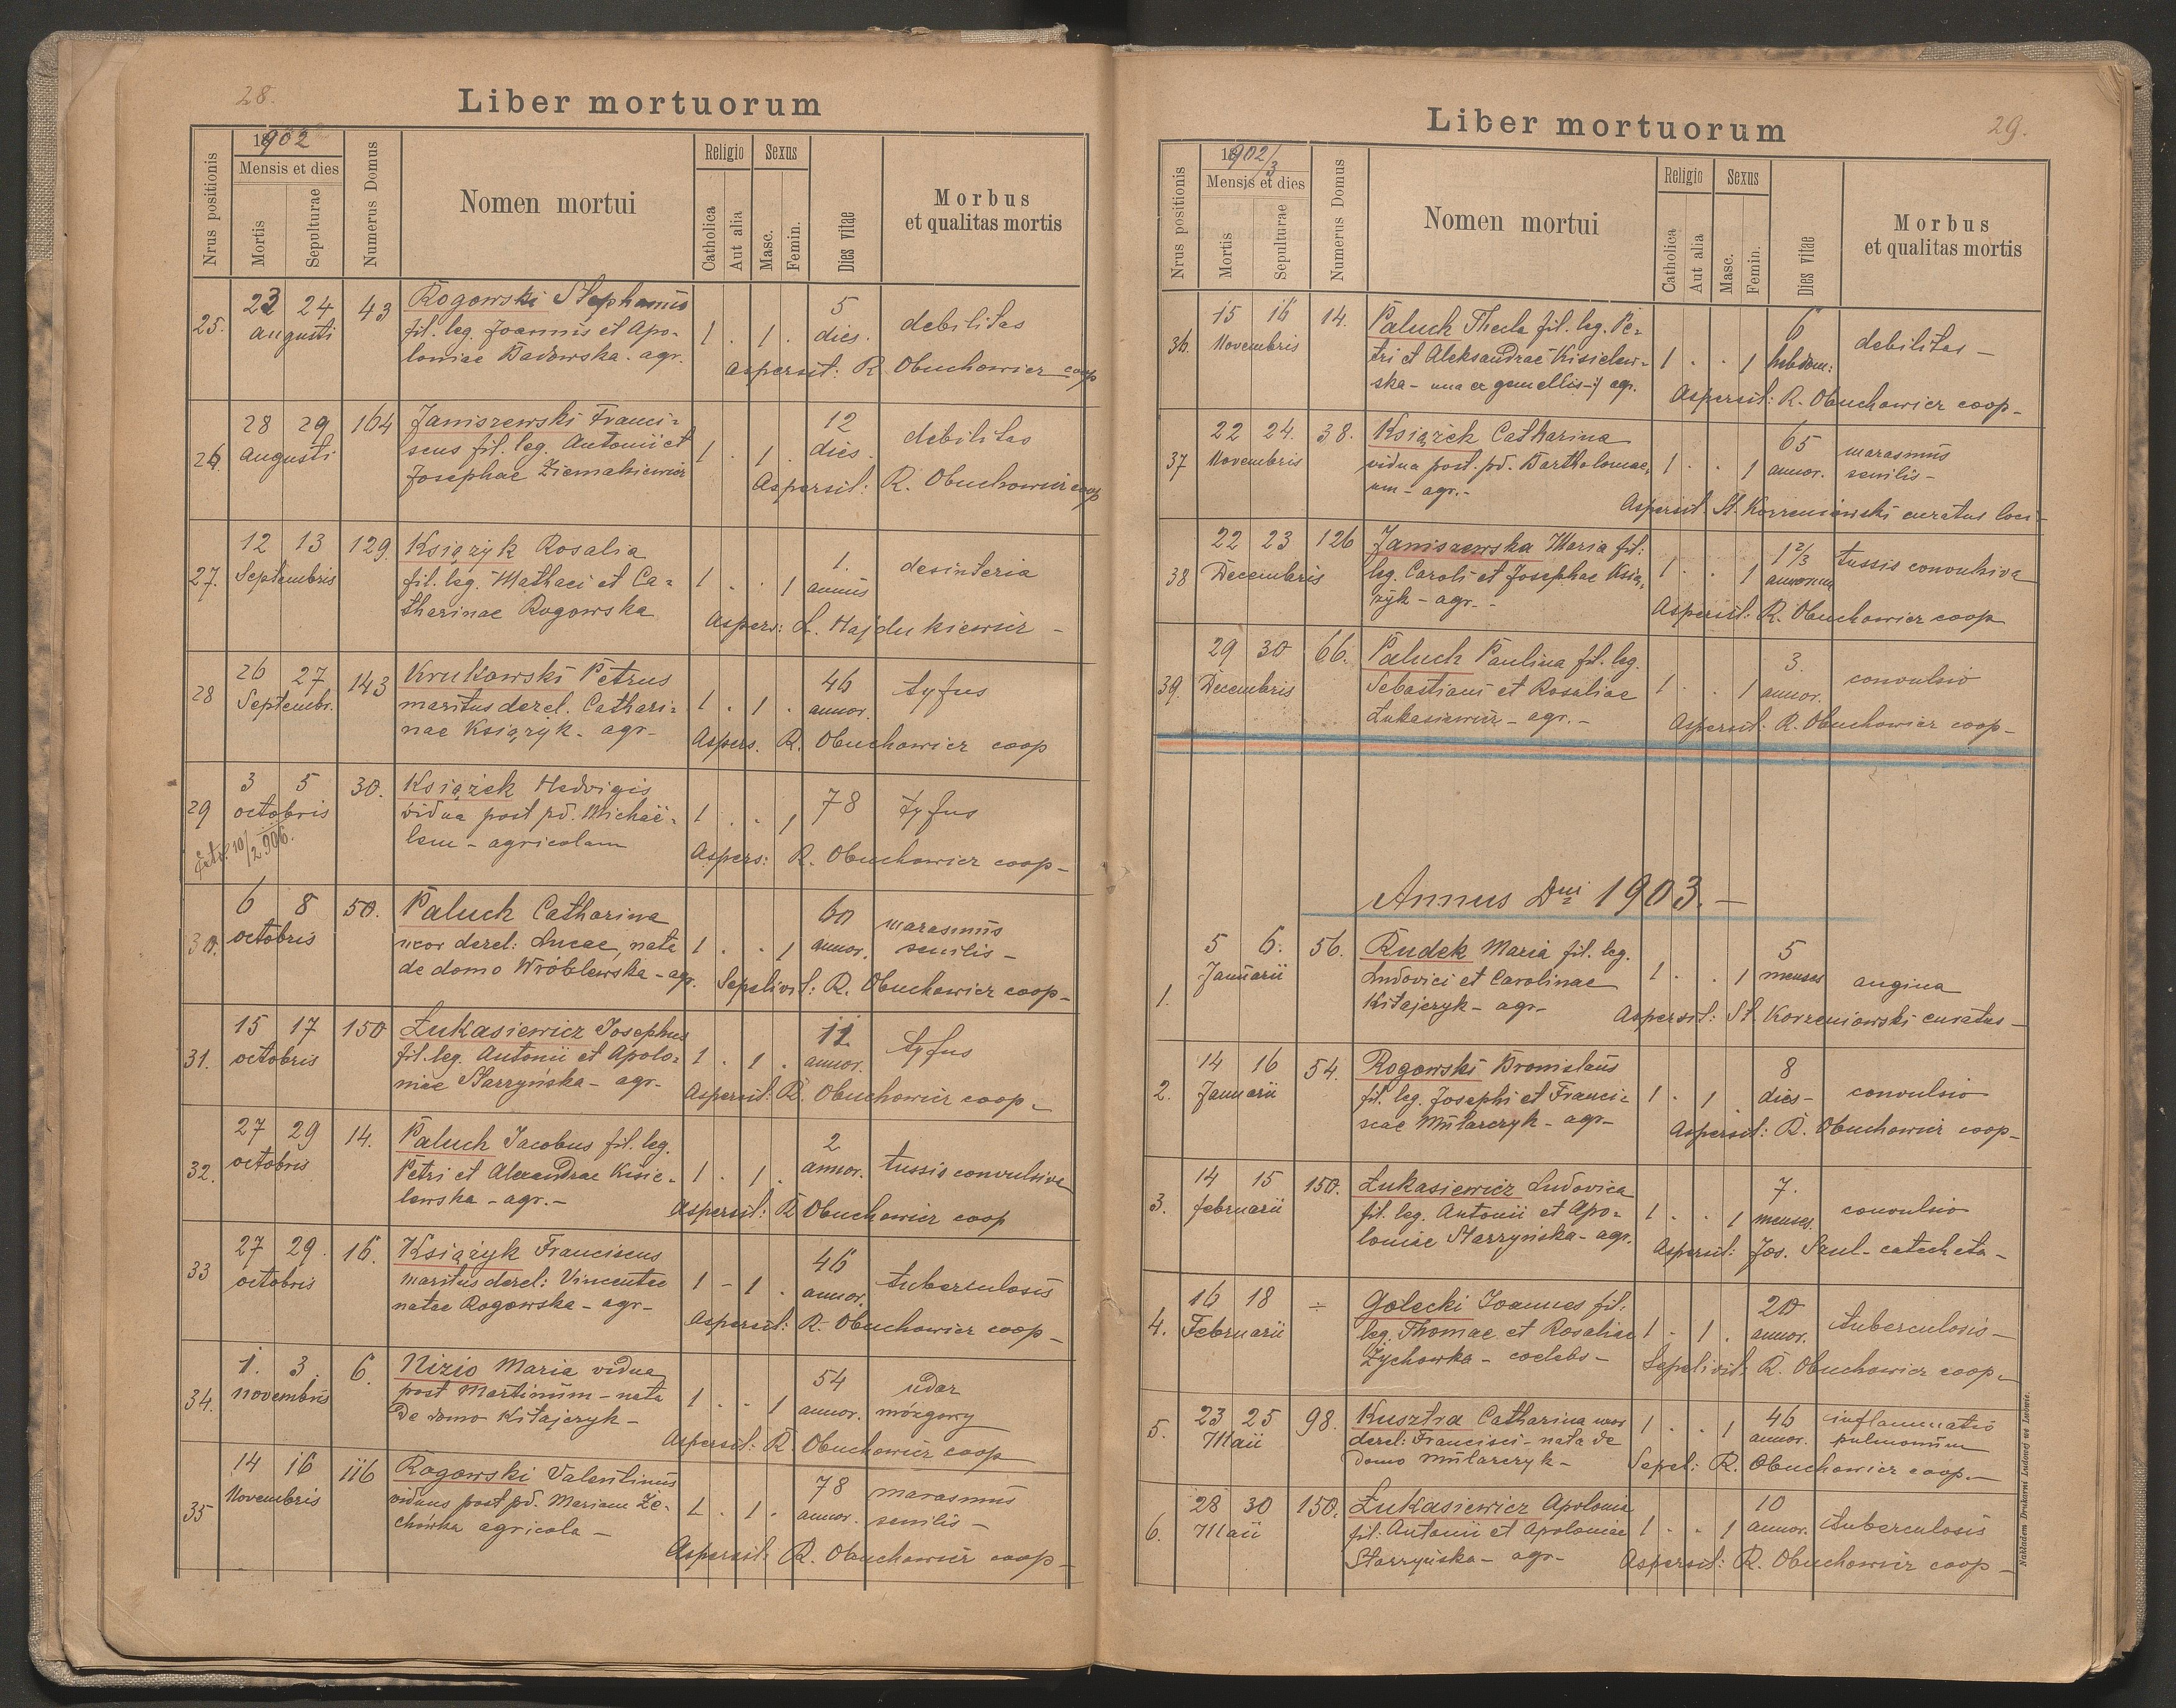 28.
Liber mortuorum
Nrus positionis
18902
Mensis et dies
Mortis
Sepulturae
Numerus Domus
Nomen mortui
Religio
Catholica
Aut alia
Sexus
Masc.
Femin.
Dies vitae
Morbus
et qualitas mortis
25. 23 24 43 Rogowski Stephanus 5
augusti fil. leg. Joannis et Apo- 1 . 1 . dies. debilitas
loniae Badowska. agr.
Aspersit: R. Obuchowicz coop
26. 28 29 164 Janiszewski Franci- 12
augusti scus fil. leg. Antonii et 1 . 1 . dies. debilitas
Josephae Ziemakiewicz
Aspersit: R. Obuchowicz coop
27. 12 13 129. Książyk Rosalia 1.
Septembris fil. leg. Mathaei et Ca- 1 . . 1 annus desinteria
tharinae Rogowska
Aspers: L. Hajdukiewicz -
28 26 27 143 Krukowski Petrus 46
Septembr. maritus derel. Cathari- 1 . 1 . annor. tyfus
nae Książyk - agr-
Aspers. R. Obuchowicz coop
29 3 5 30. Książek Hedvigis 78
octobris vidua post pd. Michaë- 1 . . 1 tyfus
lem - agricolam
10/2 906.
Aspers: R. Obuchowicz coop-
30. 6 8 50. Paluch Catharina 60 marasmus
octobris uxor derel: Lucae, nata 1 . . 1 annor. senilis-
de domo Wróblewska - agr.
Sepelivit: R. Obuchowicz coop-
31. 15 17 150 Łukasiewicz Josephus 11.
octobris fil. leg. Antonii et Apolo- 1 . 1 . annor. tyfus
niae Starzyńska - agr-
Aspersit: R. Obuchowicz coop-
32. 27 29 14. Paluch Jacobus fil. leg. 2
octobris Petri et Alexandrae Kisie- 1 . 1 . annor. tussis convulsiva
lewska - agr.-
Aspersit: R Obuchowicz coop
33 27 29. 16. Książyk Franciscus 46
octobris maritus derel: Vincentae 1 - 1 . annor. tuberculosis
natae Rogowska - agr-
Aspersit: R. Obuchowicz coop-
34. 1. 3. 6. Nizio Maria vidua 54 udar
novembris post Martinum - nata 1 . . 1 annor. mózgowy
de domo Kitajczyk-
Aspersit: R. Obuchowicz coop
35 14 16 116 Rogowski Valentinus 78 marasmus
Novembris viduus post pd. Mariam Że- 1 . 1 . annor. senilis-
chówka agricola-
Aspersit: R. Obuchowicz coop-
29.
Liber mortuorum
Nrus positionis
18902/3
Mensis et dies
Mortis
Sepulturae
Numerus Domus
Nomen mortui
Religio
Catholica
Aut alia
Sexus
Masc.
Femin.
Dies vitae
Morbus
et qualitas mortis
36. 15 16 14. Paluch Thecla fil. leg. Pe- 6
Novembris tri et Aleksandrae Kisielew- 1 . . 1 hebdom: debilitas-
ska - una ex gemellis -/ agr.
Aspersit: R. Obuchowicz coop-
37 22 24. 38. Książek Catharina 65 marasmus
Novembris vidua post. pd. Bartholomae- 1 . . 1 annor. senilis-
um - agr.-
Aspersit St. Korzeniowski curatus loci-
38 22 23 126 Janiszewska Maria fil: 1 2/3
Decembris leg. Caroli et Josephae Ksią- 1 . . 1 annorum tussis convulsiva
żyk - agr.-
Aspersit: R. Obuchowicz coop
39. 29 30 66. Paluch Paulina fil. leg. 3.
Decembris Sebastiani et Rosaliae 1 . . 1 annor. convulsio
Łukasiewicz - agr.-
Aspersit: R. Obuchowicz coop-
Annus Dni 1903.-
1. 5 6. 56. Rudek Maria fil. leg. 5
Januarii Ludovici et Carolinae 1 . . 1 menses angina
Kitajczyk - agr-
Aspersit: St. Korzeniowski curatus-
2. 14 16 54. Rogowski Bronislaus 8
Januarii fil. leg. Josephi et Franci- 1 . 1 . dies- convulsio
scae Mularczyk - agr-
Aspersit: R. Obuchowicz coop-
3. 14 15 150. Łukasiewicz Ludovica 7.
februarii fil. leg. Antonii et Apo- 1 . . 1 menses. convulsio
loniae Starzyńska - agr.
Aspersit: Jos. Saul - catecheta-
4. 16 18 ÷ Golecki Joannes fil. 20
Februarii leg. Thomae et Rosaliae 1 . 1 . annor. tuberculosis-
Żychowka - coelebs-
Sepelivit: R. Obuchowicz coop-
5. 23 25 98. Kusztra Catharina uxor 46 inflammatio
Maii derel: Francisci - nata de 1 . . 1 annor. pulmonum
domo Mularczyk-
Sepel: R. Obuchowicz coop.-
6. 28 30 150. Łukasiewicz Apolonia 10
Maii fil: Antonii et Apoloniae 1 . . 1 annor. tuberculosis
Starzyńska - agr-
Aspersit: R. Obuchowicz coop-
Nakładem Drukarni Ludowej we Lwowie.